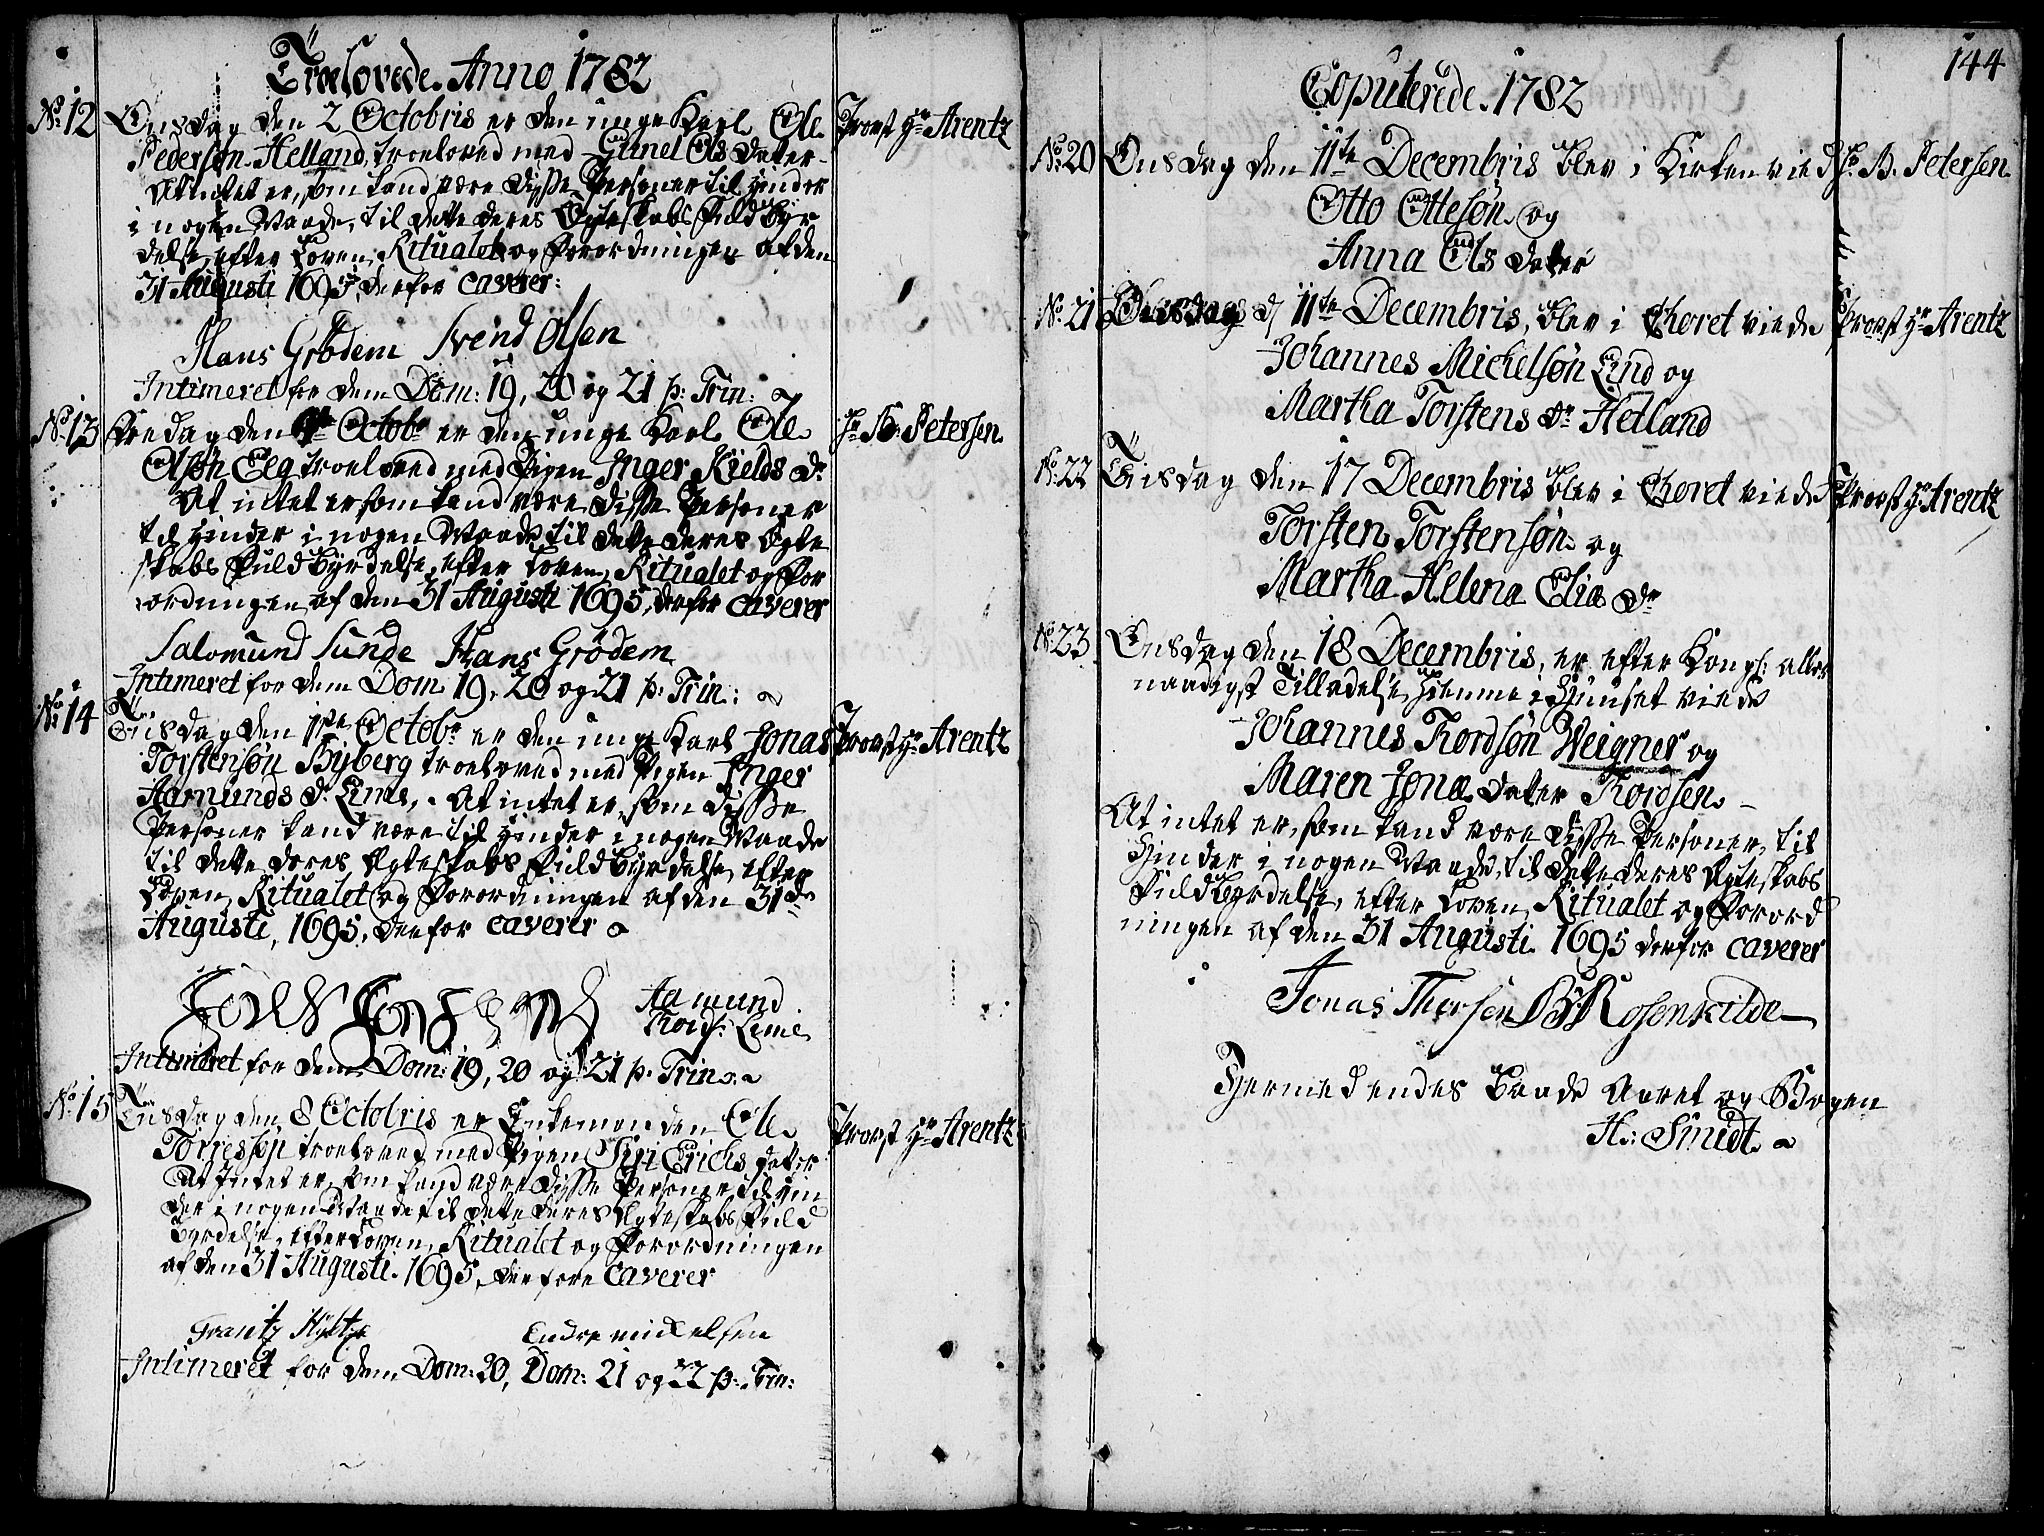 Troelovede. Anno 1782
No. 12 Onsdag den 2 Octobris er den unge Karl Ole Provst Hr Arentz
Pedersøn Helland, troeloved med Gunel Ols Dater
At intet er, som kand være disse Personer til Hinder
i nogen Maade, til dette deres Ægteskabs Fuldbyr
delse, efter Loven, Ritualet og Forordningen af den
31 Augusti 1695, derfor caverer:
Hans Grødem Svend Olsen
Intimeret for dem Dom: 19, 20 og 21 p: Trin:
No. 13 Fredag den Octobr er den unge Karl Ole Hr B. Petersen
Olsøn Eeg troeloved med Pigen Inger Kields Dr
At intet er som kand være disse Personer
til Hinder i nogen Maade til dette deres Ægte
skabs Fuldbyrdelse, efter Loven, Ritualet og For
ordningen af den 31 Augusti 1695, derfor caverer
Salomund Sunde Hans Grødem
Intimeret for dem Dom 19, 20 og 21 p: Trin:
No. 14 Tiisdag den 1ste Octobr er den unge Karl Jonas Provst Hr Arentz
Torstensøn Byberg troelowed med Pigen Inger
Aamunds Dr Lime, At intet er, som disse
Personer kand være til Hinder i nogen Maade
til dette deres Ægteskabs Fuldbyrdelse, efter
Loven, Ritualet og Forordningen af den 31de
Augusti, 1695, derfor caverer
Aamund
Tordsen Lime
Intimeret for dem Dom: 19, 20 og 21 p. Trin:
No. 15 Tiisdag den 8 Octobris er Enkemanden Ole Provst Hr Arentz
Torressøn troeloved med Pigen Siri Erichs Dater
At Intet er, som kand være disse Personer til Hin
der i nogen Maade, til dette deres Ægteskabs Fuld
byrdelse, efter Loven, Ritualet og Forordningen
af den 31 Augusti. 1695, derfore caverer
Frantz Endre mickelsen
Intimeret for dem Dom: 20, Dom: 21 og 22 p: Trin:
144
Coputerede. 1782
No. 20 Onsdag den 11te Decembris blev i Kirken vied Hr. B. Petersen.
Otto Ottesøn og
Anna Ols Dater
No. 21 Onsdag d 11te Decembris, blev i Choret viede Provst Hr Arentz
Johannes Michelsøn Lind og
Martha Torstens Dr Hetland
No. 22 Tiisdag den 17 Decembris blev i Choret viede Provst Hr Arentz
Torsten Torstensøn og
Martha Helena Eliæ Dr
No. 23 Onsdag den 18 Decembris, er efter Kongl: aller
naadigst Tilladelse, hiemme i Huuset viede
Johannes Tordsøn Weigner og
Maren Jonæ Dater Tordsen.
At intet er, som kand være disse Personer, til
Hinder i nogen Maade, til dette deres Ægteskabs
Fuldbyrdelse, efter Loven, Ritualet og Forord
ningen af den 31 Augusti 1695 derfor caverer
Jonas Thorsen Rosenkilde
Hermed endes baade Aaret og Bogen
H: Smidt.